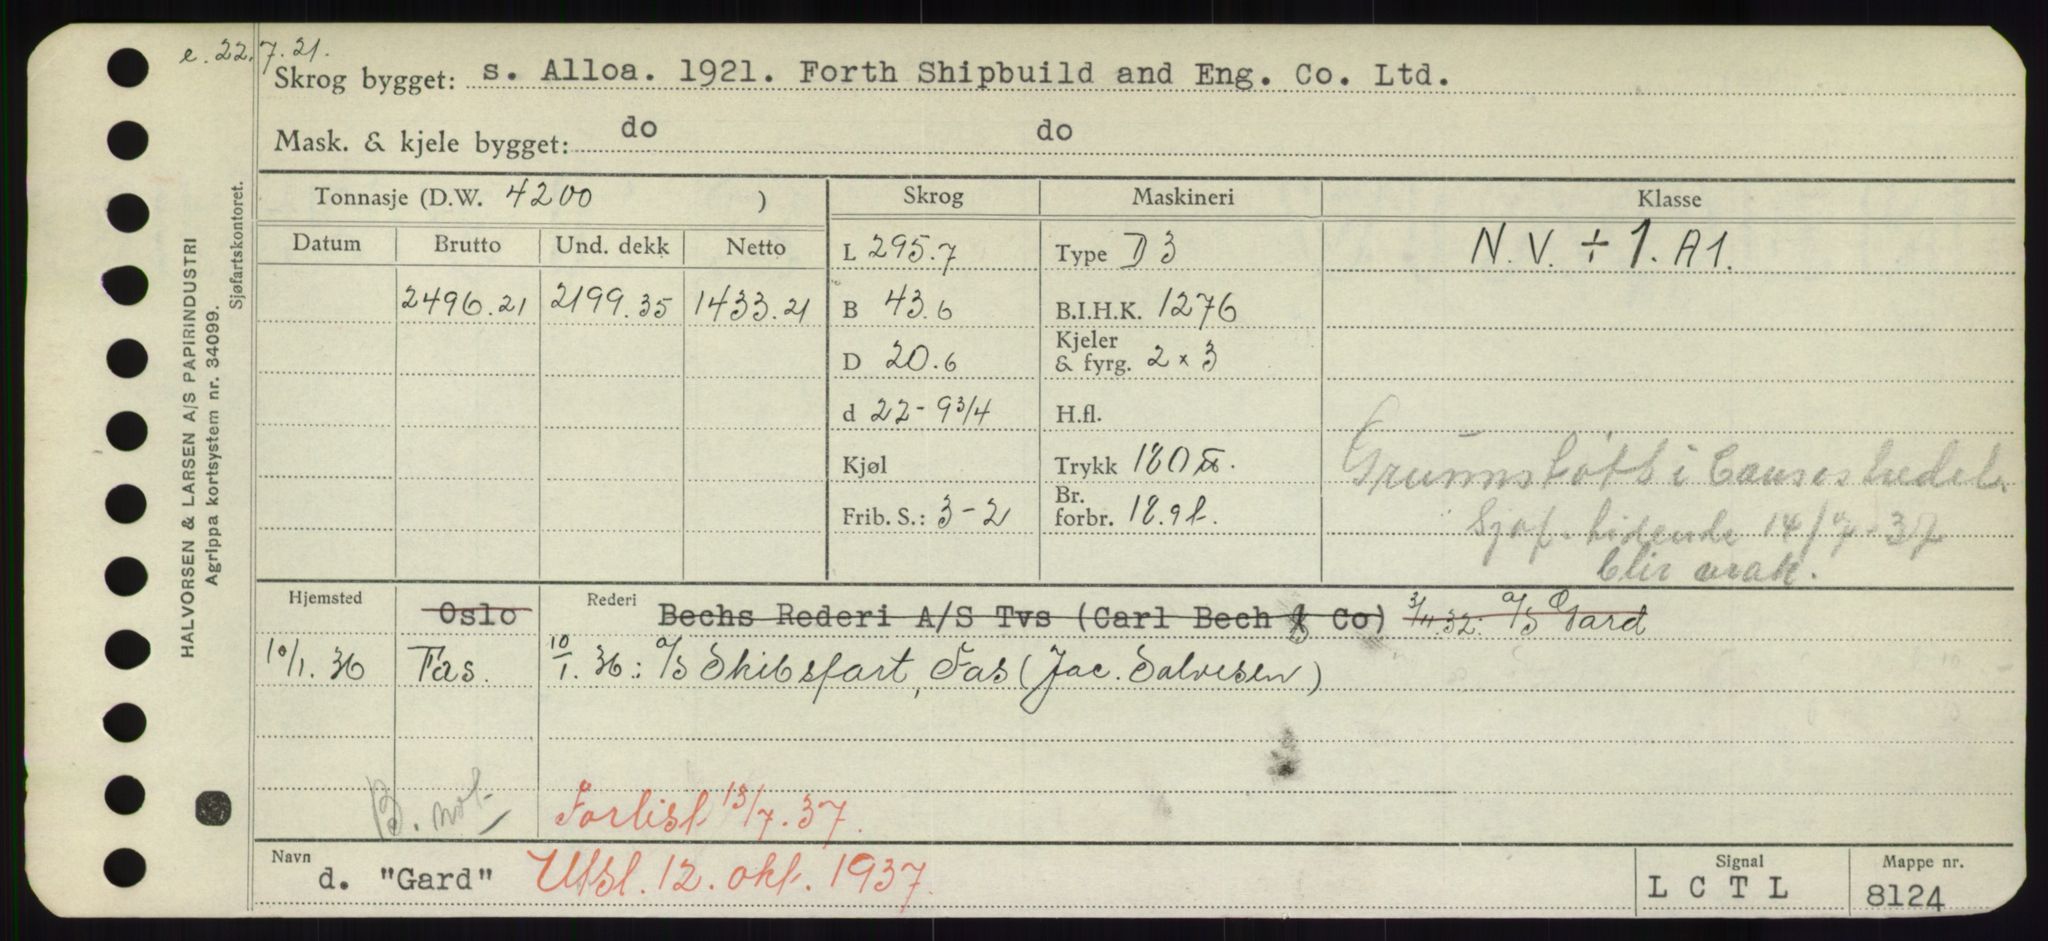 e. 22.7.21.
Skrog bygget: s. Alloa. 1921. Forth Shipbuild and Eng. Co. Ltd.
Mask. & kjele bygget: do do
Tonnasje (D.W. 4200 ) Skrog Maskineri Klasse
Datum Brutto Und. dekk Netto L 295.7 Type D 3 N.V. ÷ 1. A1.
2496.21 2199.35 1433.21 B 43.6 B.I.H.K. 1276
D 20.6 Kjeler & fyrg. 2 x 3
d 22-9 3/4 H.fl.
Kjøl Trykk 180 lb.
Frib. S.: 3-2 Br. forbr. 18.9 t.
Grunnstøtt i
Sjøf. tidende 14/7-37
blir vrak.
Hjemsted Oslo Rederi Bechs Rederi A/S Tvs (Carl Bech & Co) 3/11.32: A/S Gard
10/1.36 Fas. 10/1.36: A/S Skibsfart, Fas (Jac. Salvesen)
B. not Forlist 13/7.37.
Navn d. "Gard" Utsl. 12. okt. 1937. Signal L C T L Mappe nr. 8124
HALVORSEN & LARSEN A/S PAPIRINDUSTRI
Agrippa kortsystem nr. 34099.
Sjøfartskontoret.